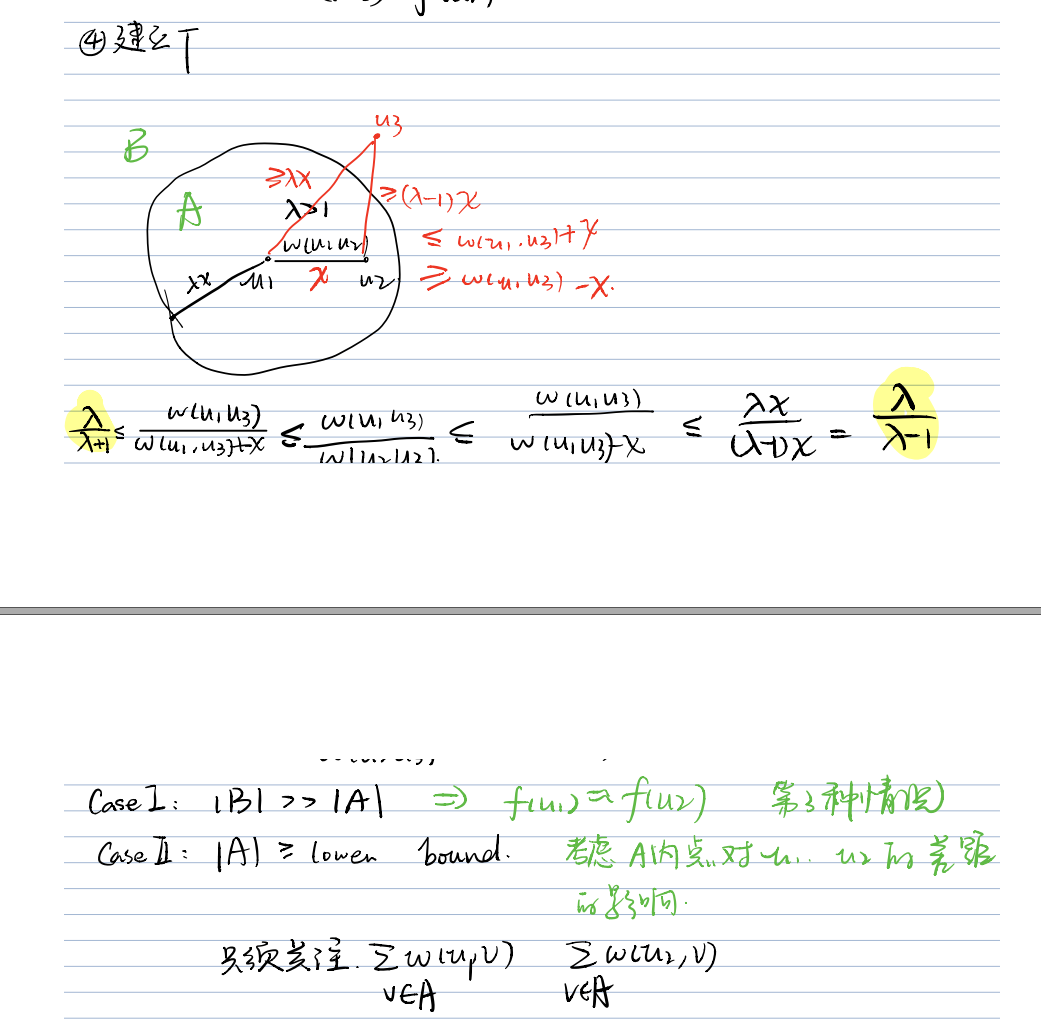 ④建立T
B
A
u3
≥λx
λ>1
≥(λ-1)x
w(u1,u2)
≤ w(u1,u3)+x
λx
u1
x
u2
≥ w(u1,u3)-x.
λ/(λ+1) ≤ w(u1,u3)/(w(u1,u3)+x) ≤ w(u1,u3)/w(u2,u3) ≤ w(u1,u3)/(w(u1,u3)-x) ≤ λx/((λ-1)x) = λ/(λ-1)
Case I: |B| >> |A| ⇒ f(u1) ≈ f(u2) 第3种情况
Case II: |A| ≥ lower bound. 考虑 A内点对u1. u2的差距
的影响.
只须关注. ∑w(u1,v) ∑w(u2,v)
v∈A v∈A